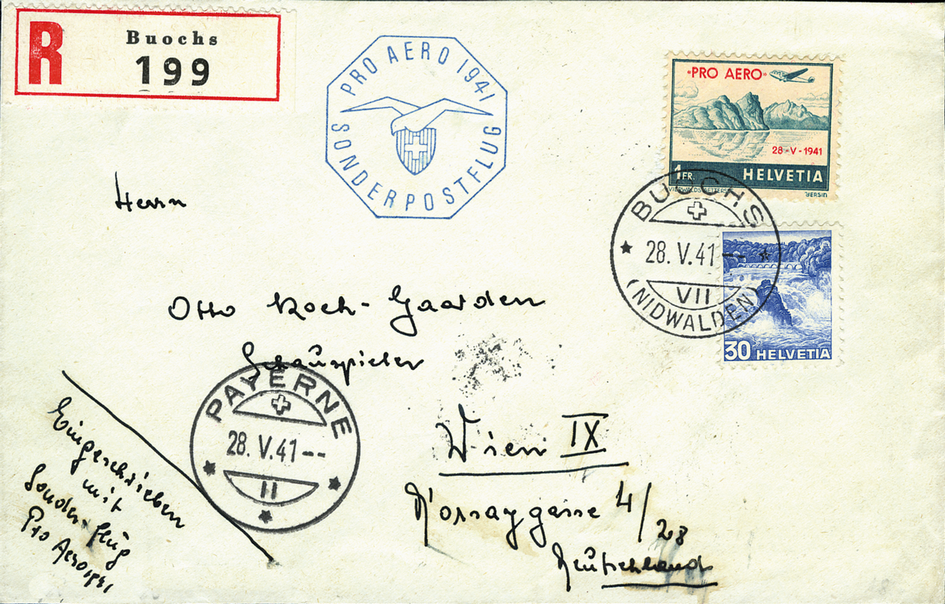 R Buochs
199
PRO AERO 1941
SONDERPOSTFLUG
*PRO AERO*
28-V-1941
1 FR. HELVETIA
HERSIN
BUOCHS
28.V.41--
VII
(NIDWALDEN)
30 HELVETIA
Herrn
Otto Koch-Gaarden
Schauspieler
PAYERNE
28.V.41--
II
Wien IX
4/28
Deutschland
Eingeschrieben
mit
Sonder-flug
Pro Aero 1941